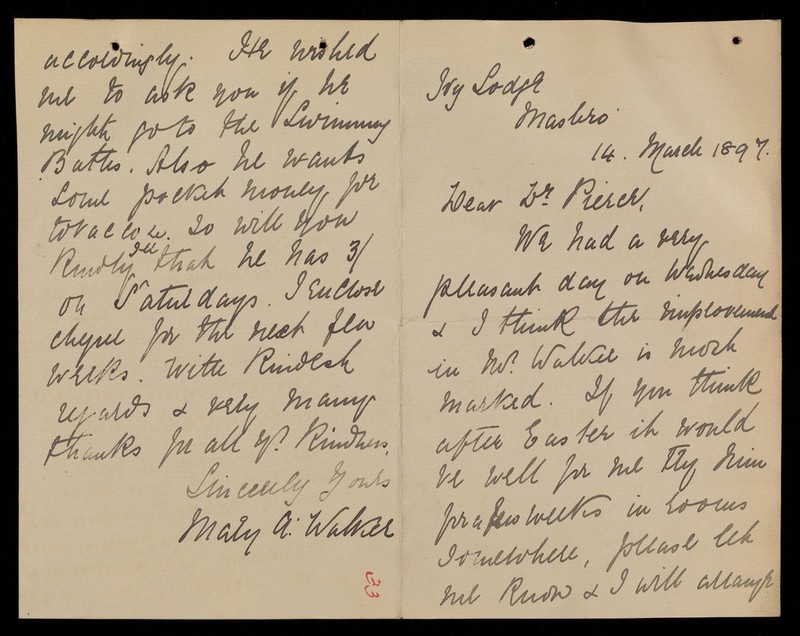 Ivy Lodge
Masbro'
14. March 1897.
Dear Dr. Pierce,
We had a very
pleasant day on Wednesday
& I think the improvement
in Mr. Walker is most
marked. If you think
after Easter it would
be well for me try him
for a few weeks in rooms
somewhere, please let
me know & I will arrange
accordingly. He wished
me to ask you if he
might go to the Swimming
Baths. Also he wants
some pocket money for
tobacco. So will you
kindly see that he has 3/
on Saturdays. I enclose
cheque for the next few
weeks. With kindest
regards & very many
thanks for all yr. kindness,
Sincerely Yours
Mary A. Walker
33